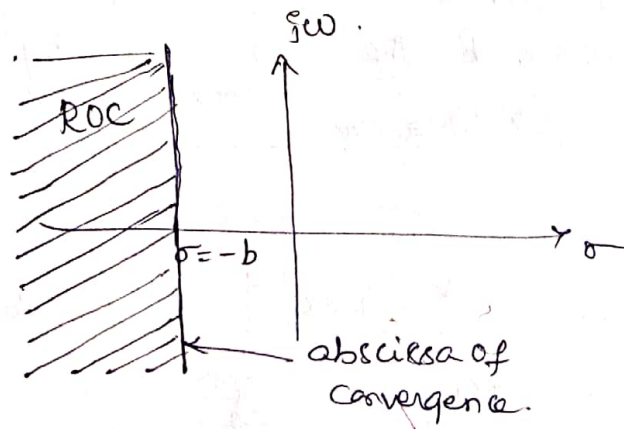 jω.
ROC
σ = -b
σ
abscissa of
convergence.